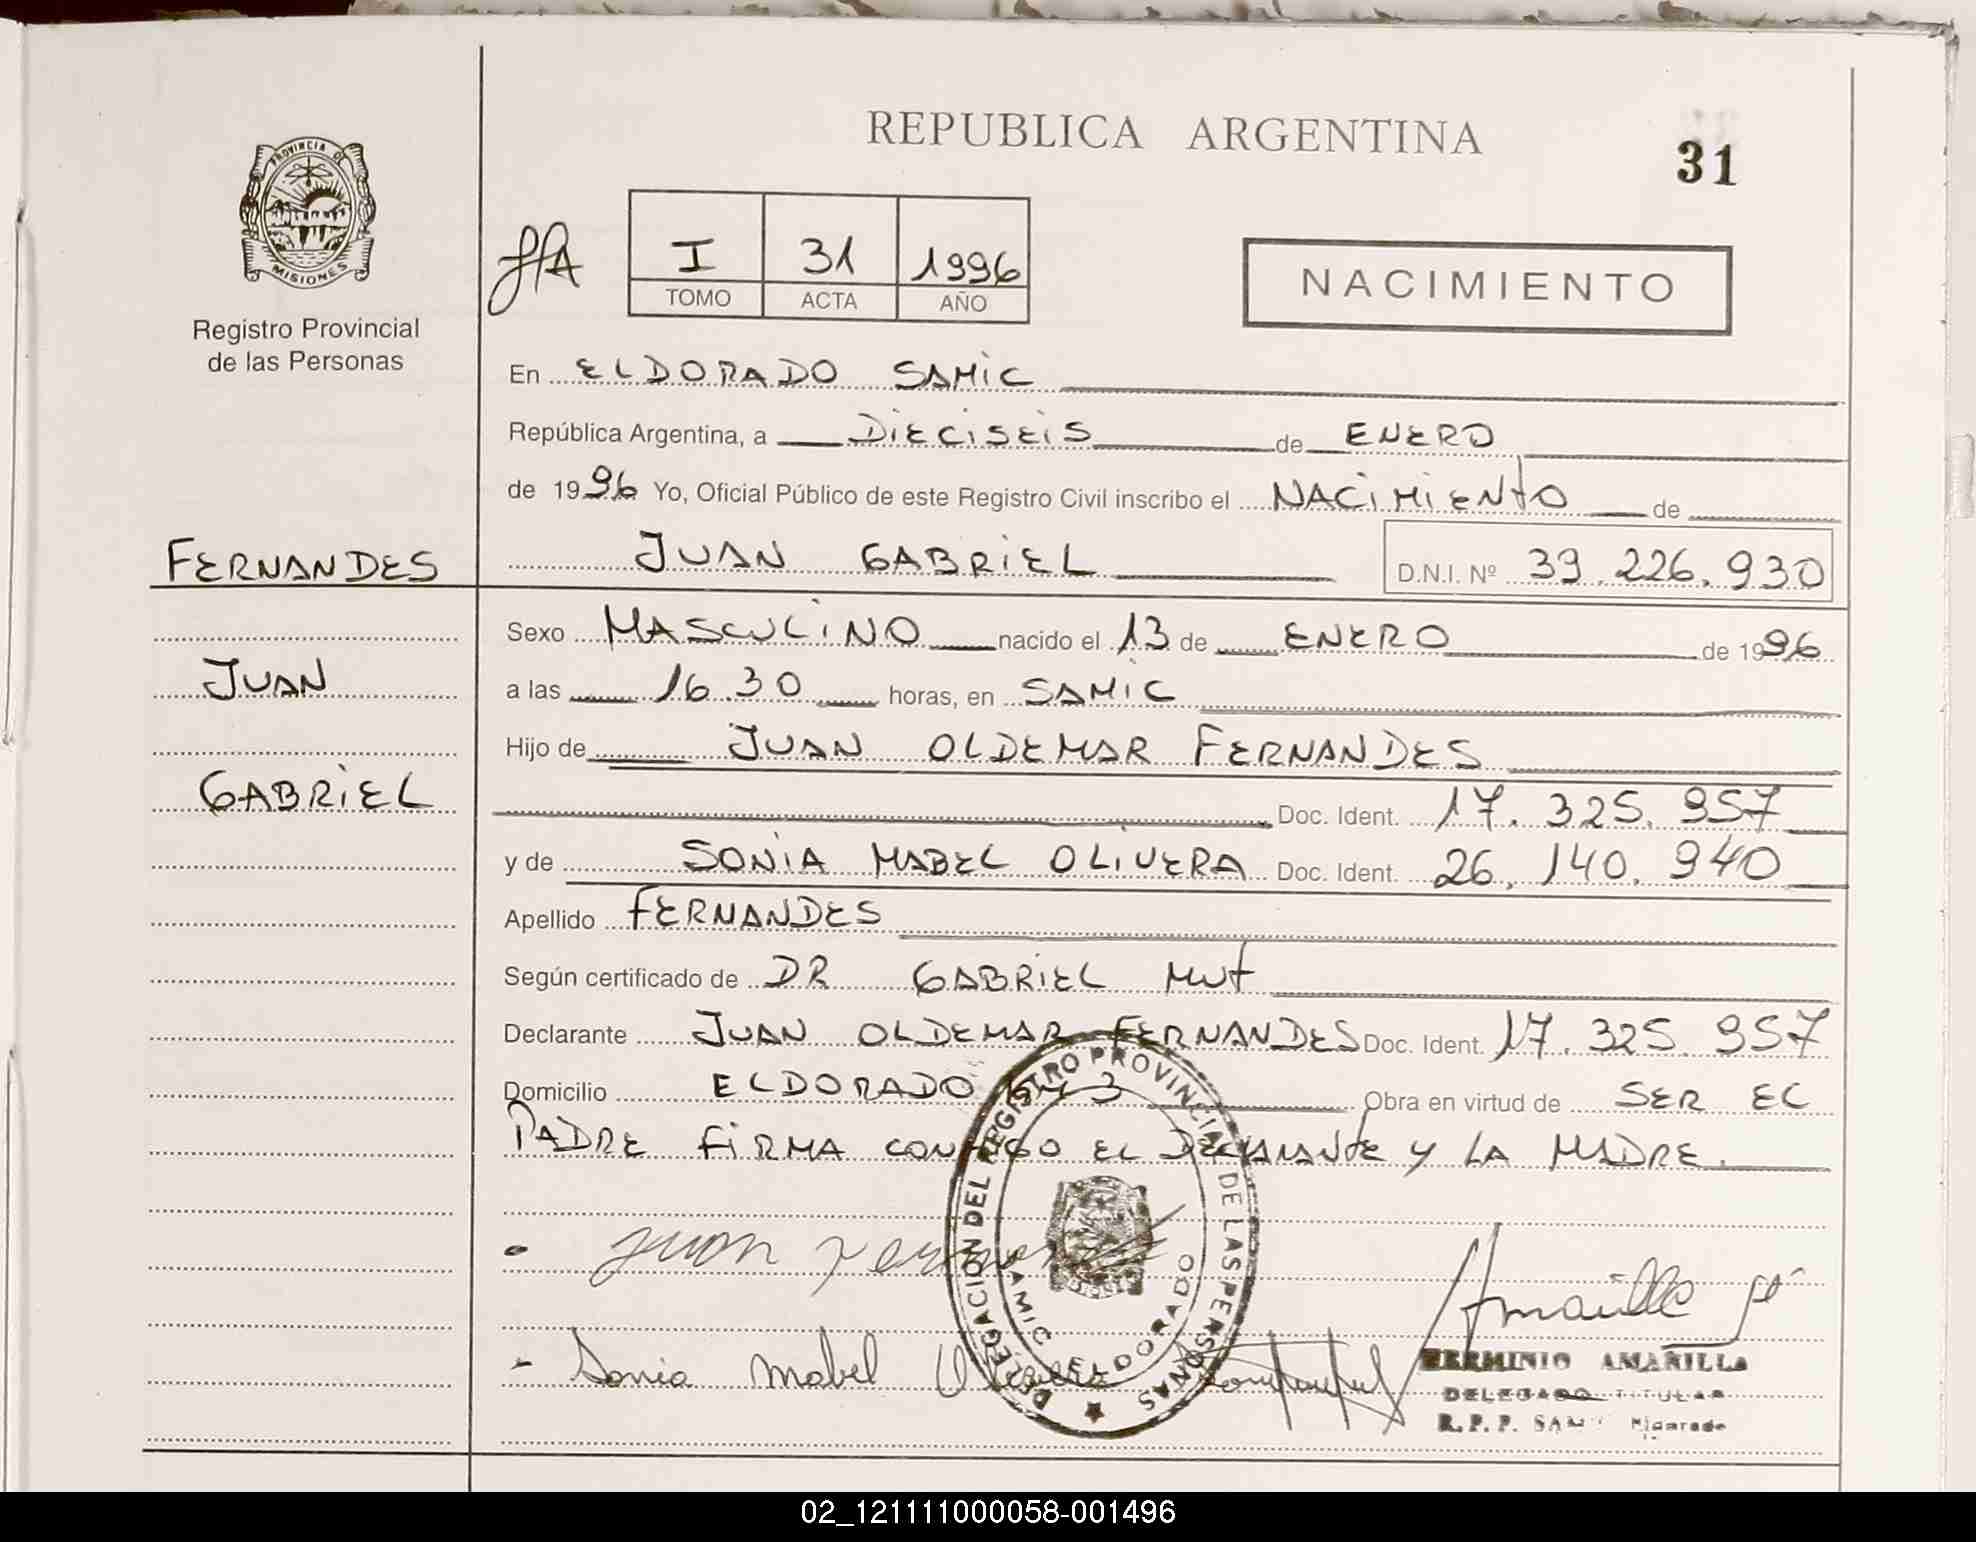 REPUBLICA ARGENTINA
31
PROVINCIA DE
MISIONES
Registro Provincial
de las Personas
I 31 1996
TOMO ACTA AÑO
NACIMIENTO
En ELDORADO SAMIC
República Argentina, a DIECISEIS de ENERO
de 1996 Yo, Oficial Público de este Registro Civil inscribo el NACIMIENTO de
FERNANDES JUAN GABRIEL D.N.I. Nº 39.226.930
Sexo MASCULINO nacido el 13 de ENERO de 1996
JUAN
a las 16.30 horas, en SAMIC
Hijo de JUAN OLDEMAR FERNANDES
GABRIEL
Doc. Ident. 17.325.957
y de SONIA MABEL OLIVERA Doc. Ident. 26.140.940
Apellido FERNANDES
Según certificado de DR GABRIEL MUT
Declarante JUAN OLDEMAR FERNANDES Doc. Ident. 17.325.957
Domicilio ELDORADO Obra en virtud de SER EL
PADRE FIRMA CONMIGO EL DECLARANTE Y LA MADRE.
DELEGACION DEL REGISTRO PROVINCIAL DE LAS PERSONAS
SAMIC ELDORADO
Juan
Sonia Mabel Olivera
HERMINIO AMARILLA
DELEGADO TITULAR
R.P.P. SAMIC
02_121111000058-001496